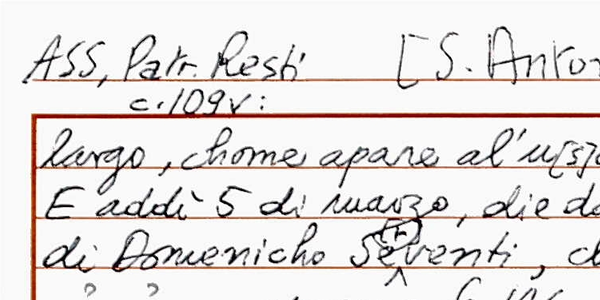 ASS, Patr. Resti [S. Anton
c. 109v:
largo, chome apare al'u[s]
E addì 5 di marzo, die da
di Domenicho Serventi, ch